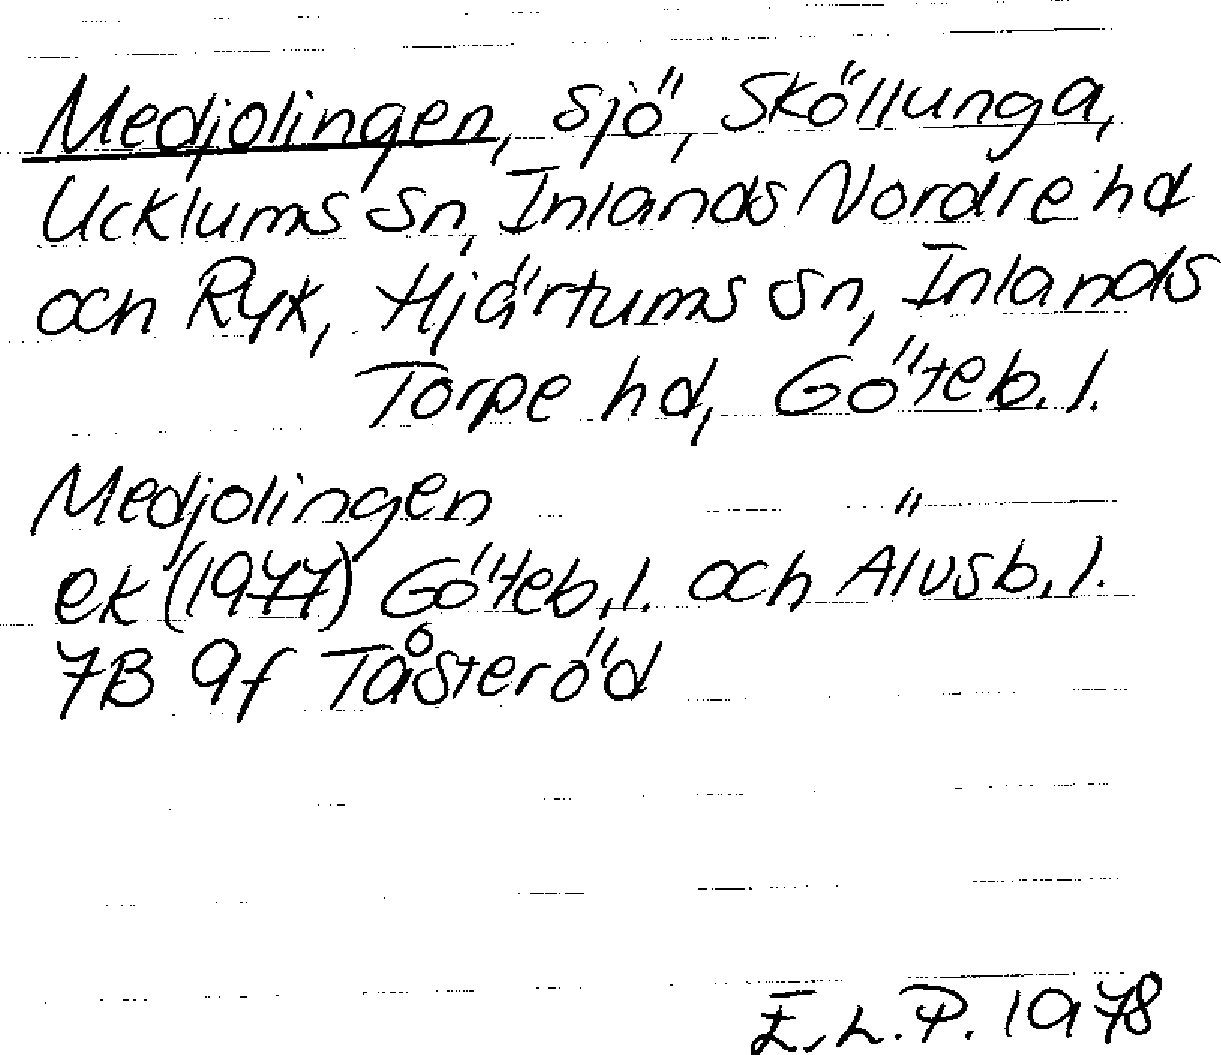 Medjolingen, sjö, Sköllunga,
Ucklums sn, Inlands Nordre hd
och Ryk, Hjärtums sn, Inlands
Torpe hd, Göteb. l.
Medjolingen "
ek (1977) Göteb. l. och Älvsb. l.
7B 9f Tåsteröd
E. L. P. 1978